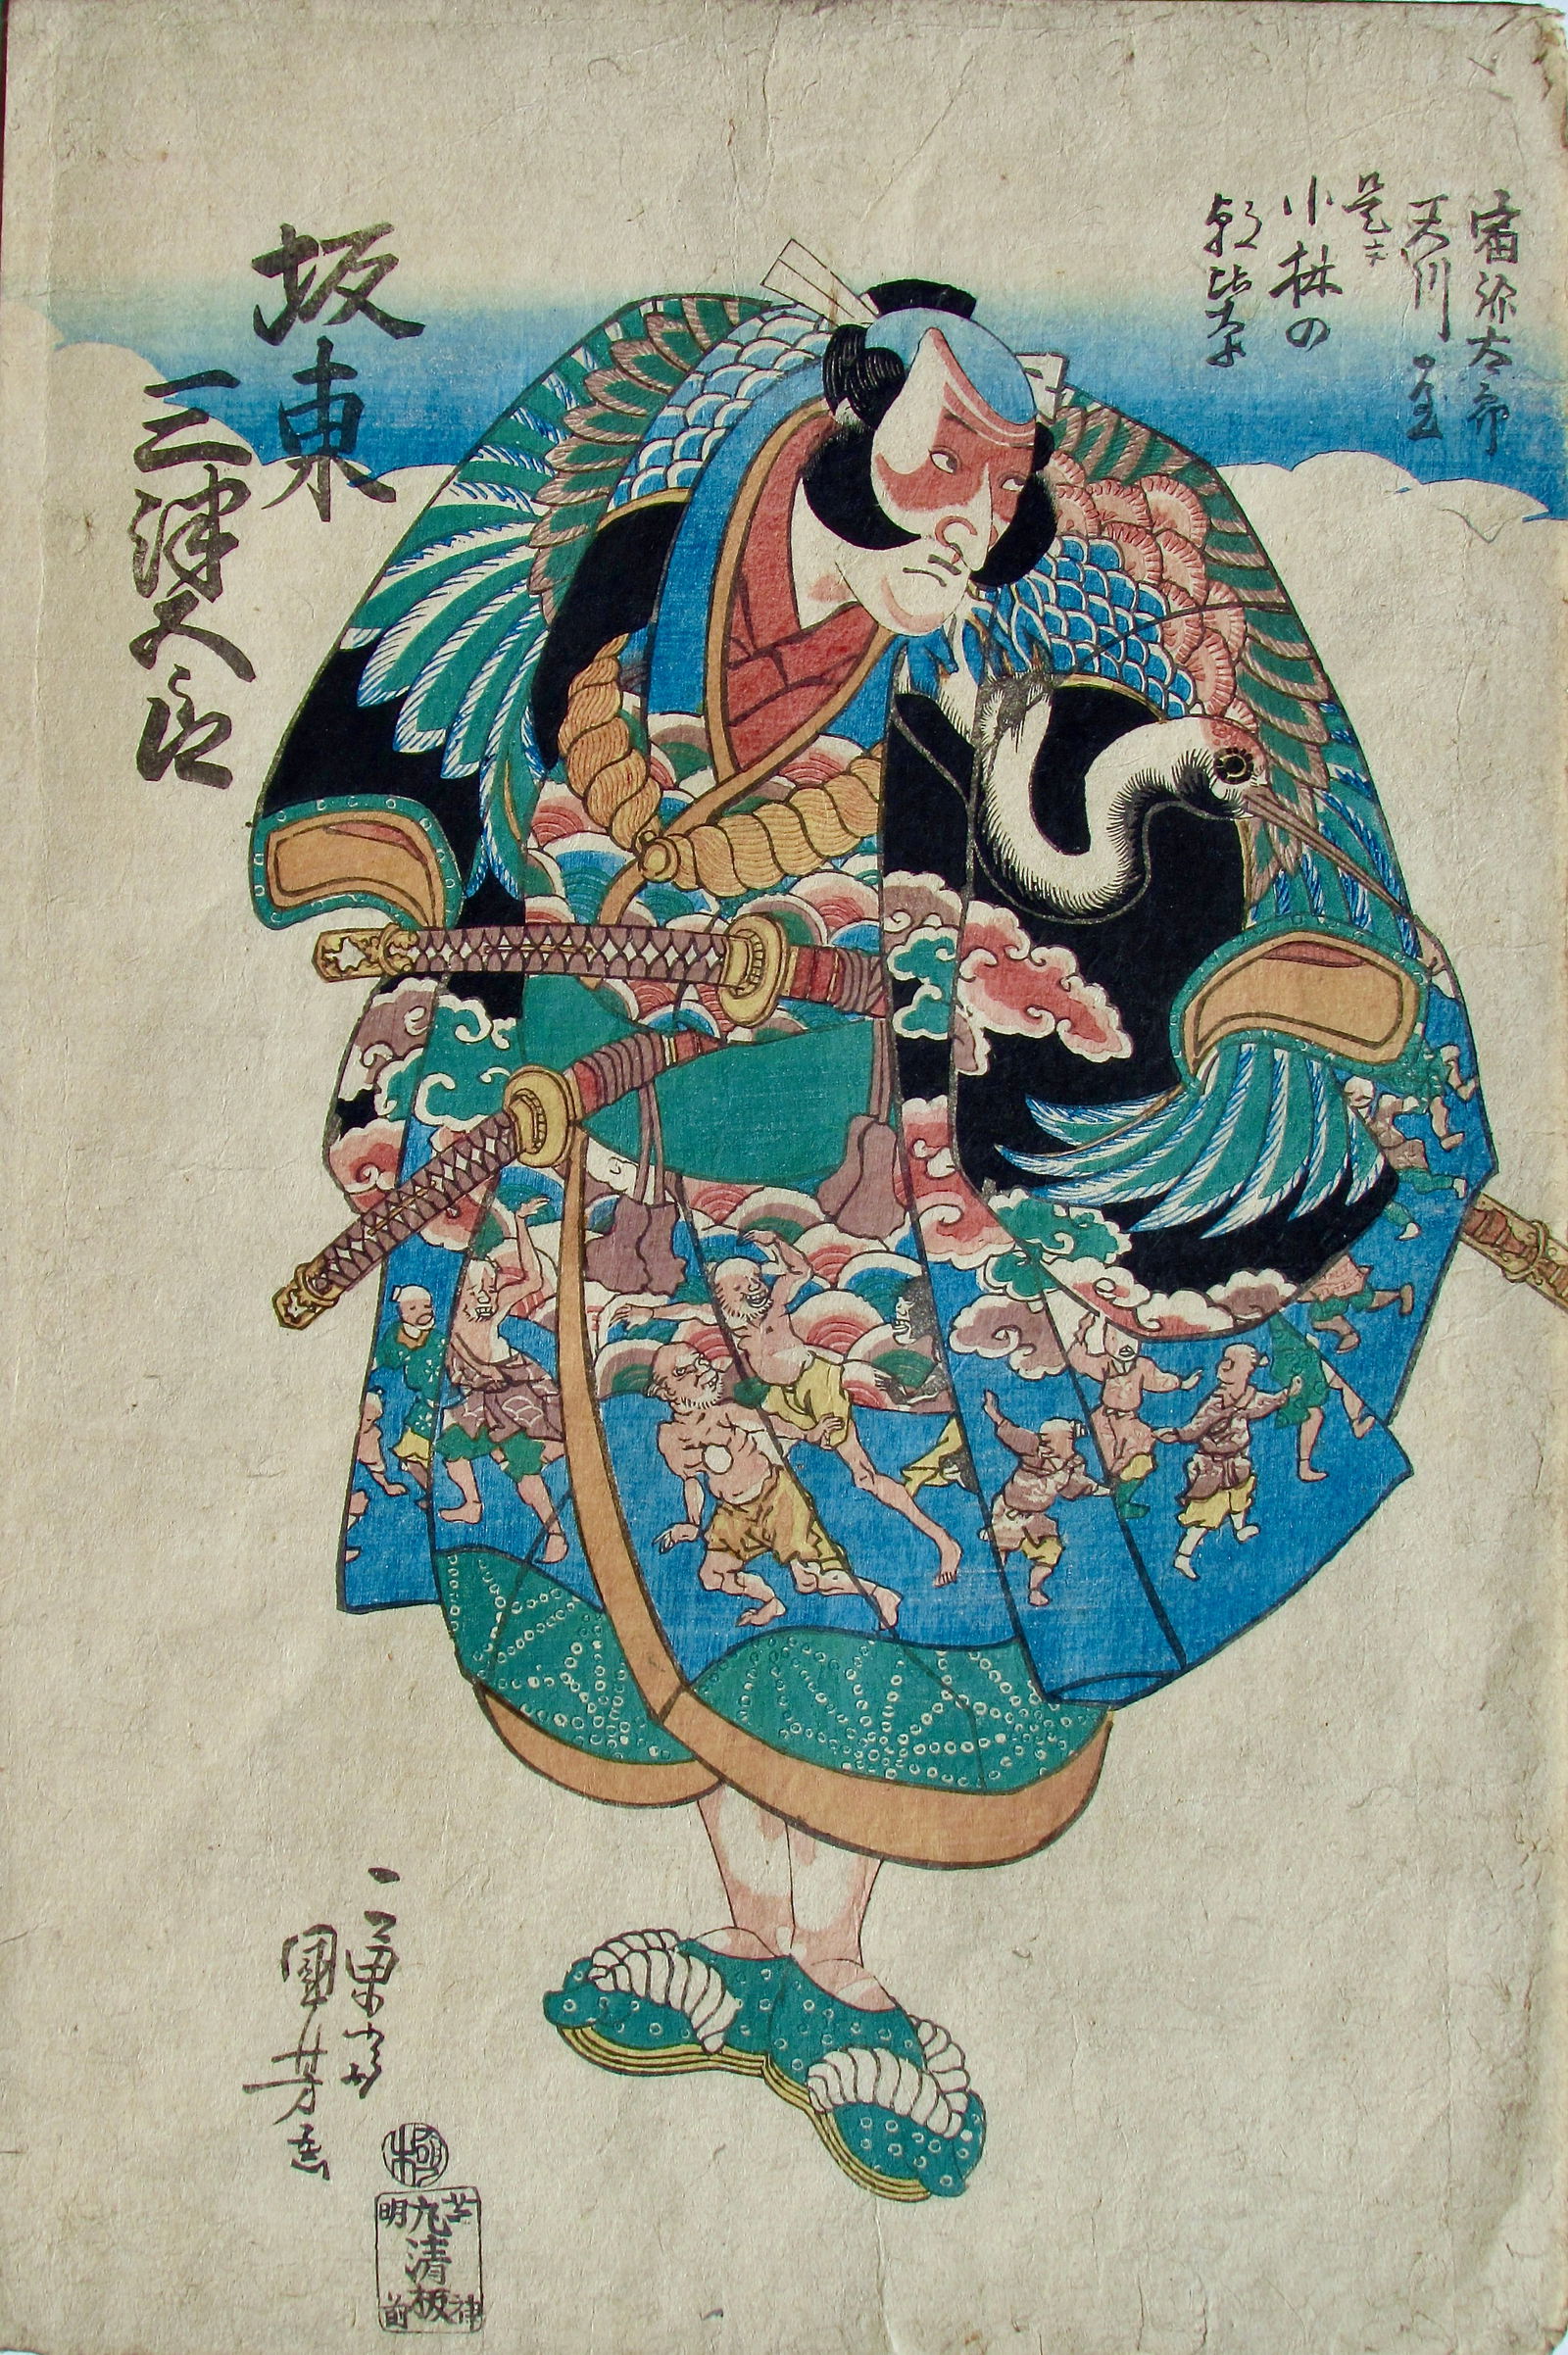 天川屋
実ハ
小林の
朝比奈
坂東
三津五郎
一勇斎
國芳画
極
芝
神
明
前
丸清板